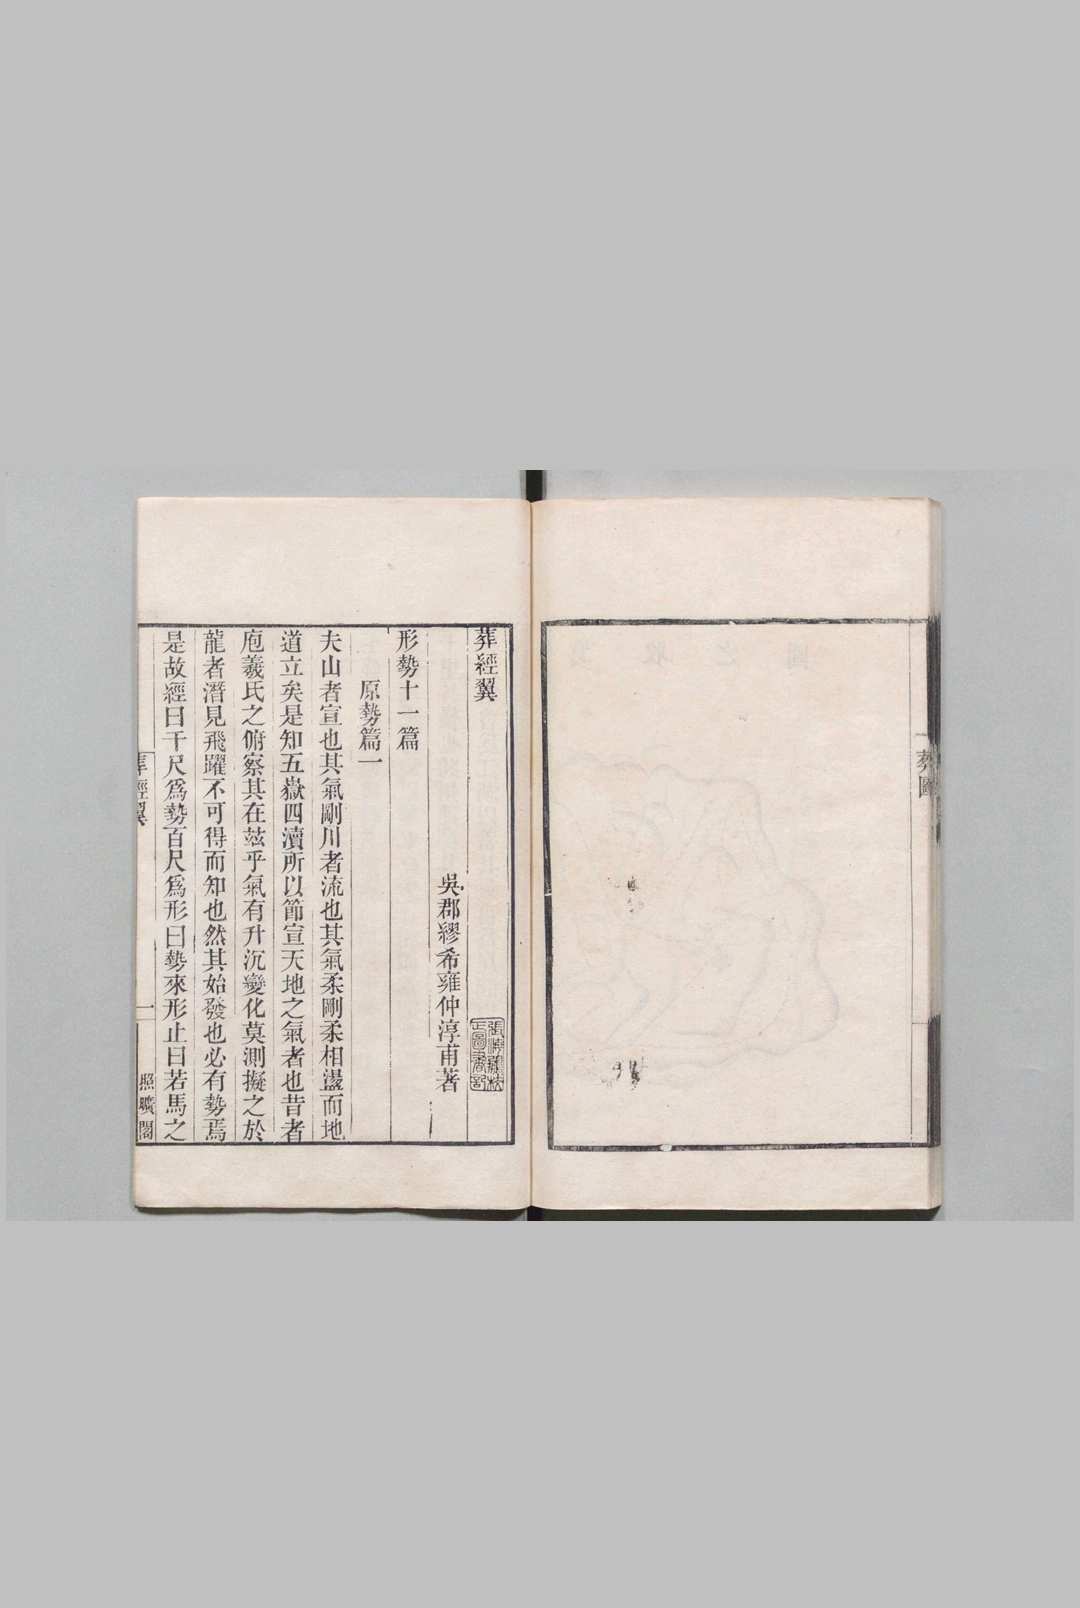 葬圖
葬經翼
吳郡繆希雍仲淳甫著
形勢十一篇
原勢篇一
夫山者宣也其氣剛川者流也其氣柔剛柔相盪而地
道立矣是知五嶽四瀆所以節宣天地之氣者也昔者
庖羲氏之俯察其在茲乎氣有升沉變化莫測擬之於
龍者潛見飛躍不可得而知也然其始發也必有勢焉
是故經曰千尺爲勢百尺爲形曰勢來形止曰若馬之
葬經翼
一
照曠閣